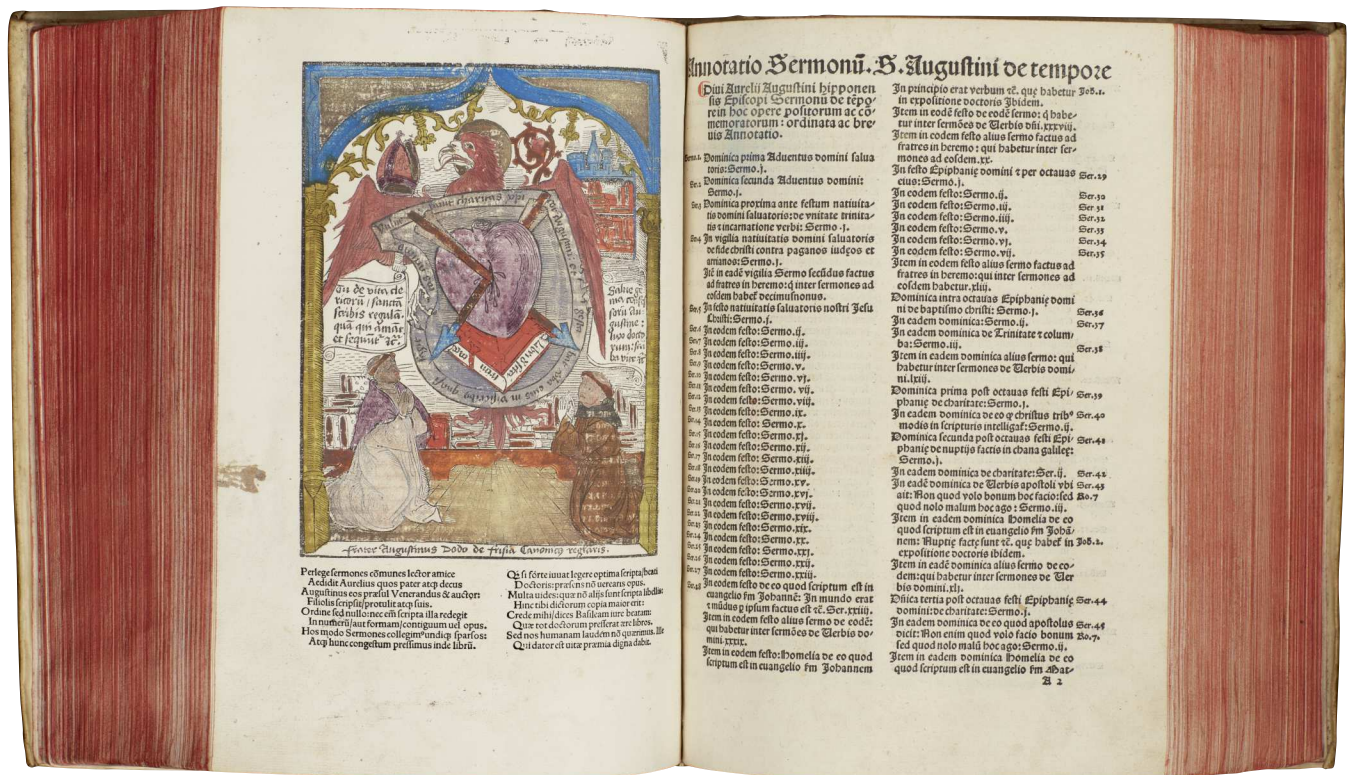 Tu de vita cle
ricorū / sanctā
scribis regulā.
quā qui amāt
et sequūt' ꝛc̄.
Frater Augustinus Dodo de frisia Canonicꝰ reglaris.
Perlege sermones cōmunes lector amice
Aedidit Aurelius quos pater atq̃ decus
Augustinus eos præsul Venerandus & auctor:
Filiolis scripsit/protulit atq̃ suis.
Ordine sed nullo: nec em̄ scripta illa redegit
In numerū/aut formam/contiguum uel opus.
Hos modo Sermones collegimꝰ undiq̃ sparsos:
Atq̃ hunc congestum pressimus inde librū.
Qđ si forte iuuat legere optima scripta/beati
Doctoris: præsens nō uereans opus.
Multa uides: quæ nō alijs sunt scripta libellis:
Hinc tibi dictorum copia maior erit:
Crede mihi/dices Basileam iure beatam:
Quæ tot doctorum presserat ære libros.
Sed nos humanam laudem nō quærimus. Ille
Qui dator est uitæ præmia digna dabit.
Annotatio Sermonū. S. Augustini de tempore
Diui Aurelii Augustini hipponen
sis Episcopi Sermonū de tēpo-
re in hoc opere positorum ac cō-
memoratorum: ordinata ac bre
uis Annotatio.
Dominica prima Aduentus domini salua
toris: Sermo.j.
Ser.2 Dominica secunda Aduentus domini:
Sermo.j.
Ser.3 Dominica proxima ante festum natiuita-
tis domini saluatoris: de vnitate trinita-
tis ⁊ incarnatione verbi: Sermo.j.
Ser.4 In vigilia natiuitatis domini saluatoris
de fide christi contra paganos iudęos et
arrianos: Sermo.j.
Itē in eadē vigilia Sermo secūdus factus
ad fratres in heremo: q̇ inter sermones ad
eosdem habet decimusnonus.
Ser.5 In festo natiuitatis saluatoris nostri Jesu
Christi: Sermo.j.
Ser.6 In eodem festo: Sermo.ij.
Ser.7 In eodem festo: Sermo.iij.
Ser.8 In eodem festo: Sermo.iiij.
Ser.9 In eodem festo: Sermo.v.
Ser.10 In eodem festo: Sermo.vj.
Ser.11 In eodem festo: Sermo.vij.
Ser.12 In eodem festo: Sermo.viij.
Ser.13 In eodem festo: Sermo.ix.
Ser.14 In eodem festo: Sermo.x.
Ser.15 In eodem festo: Sermo.xj.
Ser.16 In eodem festo: Sermo.xij.
Ser.17 In eodem festo: Sermo.xiij.
Ser.18 In eodem festo: Sermo.xiiij.
Ser.19 In eodem festo: Sermo.xv.
Ser.20 In eodem festo: Sermo.xvj.
Ser.21 In eodem festo: Sermo.xvij.
Ser.22 In eodem festo: Sermo.xviij.
Ser.23 In eodem festo: Sermo.xix.
Ser.24 In eodem festo: Sermo.xx.
Ser.25 In eodem festo: Sermo.xxj.
Ser.26 In eodem festo: Sermo.xxij.
Ser.27 In eodem festo: Sermo.xxiij.
Ser.28 In eodem festo de eo quod scriptum est in
euangelio ẜm Johannē: In mundo erat
⁊ mūdus ꝑ ipsum factus est ⁊c̄. Ser.xxiiij.
Item in eodem festo alius sermo de eodē:
qui habetur inter sermōes de Verbis do-
mini.xxxix.
Item in eodem festo: homelia de eo quod
scriptum est in euangelio ẜm Johannem
In principio erat verbum ⁊c̄. quę habetur Joh.1.
in expositione doctoris Ibidem.
Item in eodē festo de eodē sermo: q̇ habe-
tur inter sermōes de Verbis dn̄i.xxxviij.
Item in eodem festo alius sermo factus ad
fratres in heremo: qui habetur inter ser-
mones ad eosdem.xx.
In festo Epiphanię domini ⁊ per octauas
eius: Sermo.j. Ser.29
In eodem festo: Sermo.ij. Ser.30
In eodem festo: Sermo.iij. Ser.31
In eodem festo: Sermo.iiij. Ser.32
In eodem festo: Sermo.v. Ser.33
In eodem festo: Sermo.vj. Ser.34
In eodem festo: Sermo.vij. Ser.35
Item in eodem festo alius sermo factus ad
fratres in heremo: qui inter sermones ad
eosdem habetur.xlij.
Dominica intra octauas Epiphanię domi
ni de baptismo christi: Sermo.j. Ser.36
In eadem dominica: Sermo.ij. Ser.37
In eadem dominica de Trinitate ⁊ colum/
ba: Sermo.iij. Ser.38
Item in eadem dominica alius sermo: qui
habetur inter sermones de Verbis domi/
ni.lxiij.
Dominica prima post octauas festi Epi/ Ser.39
phanię de charitate: Sermo.j.
In eadem dominica de eo q̇ christus tribꝰ Ser.40
modis in scripturis intelligat̄: Sermo.ij.
Dominica secunda post octauas festi Epi/ Ser.41
phanię de nuptijs factis in chana galileę:
Sermo.j.
In eadem dominica de charitate: Ser.ij. Ser.42
In eadē dominica de Verbis apostoli vbi Ser.43
ait: Non quod volo bonum hoc facio: sed Ro.7
quod nolo malum hoc ago: Sermo.iij.
Item in eadem dominica Homelia de eo
quod scriptum est in euangelio ẜm Johā/
nem: Nuptię factę sunt ⁊c̄. quę habet̄ in Joh.2.
expositione doctoris ibidem.
Item in eadē dominica alius sermo de eo-
dem: qui habetur inter sermones de Ver
bis domini.xlj.
Dn̄ica tertia post octauas festi Epiphanię Ser.44
domini: de charitate: Sermo.j.
In eadem dominica de eo quod apostolus Ser.45
dicit: Non enim quod volo facio bonum Ro.7.
sed quod nolo malū hoc ago: Sermo.ij.
Item in eadem dominica Homelia de eo
quod scriptum est in euangelio ẜm Mat-
A 2